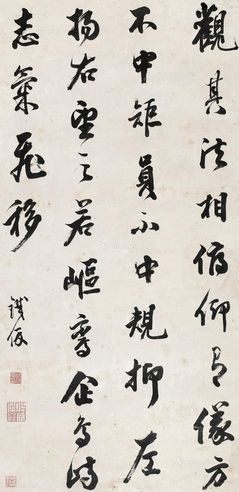 觀其法相俯仰有儀方
不中矩員不中規抑左
揚右望之若嶇企鳥峙
志氣飛移
鐵保